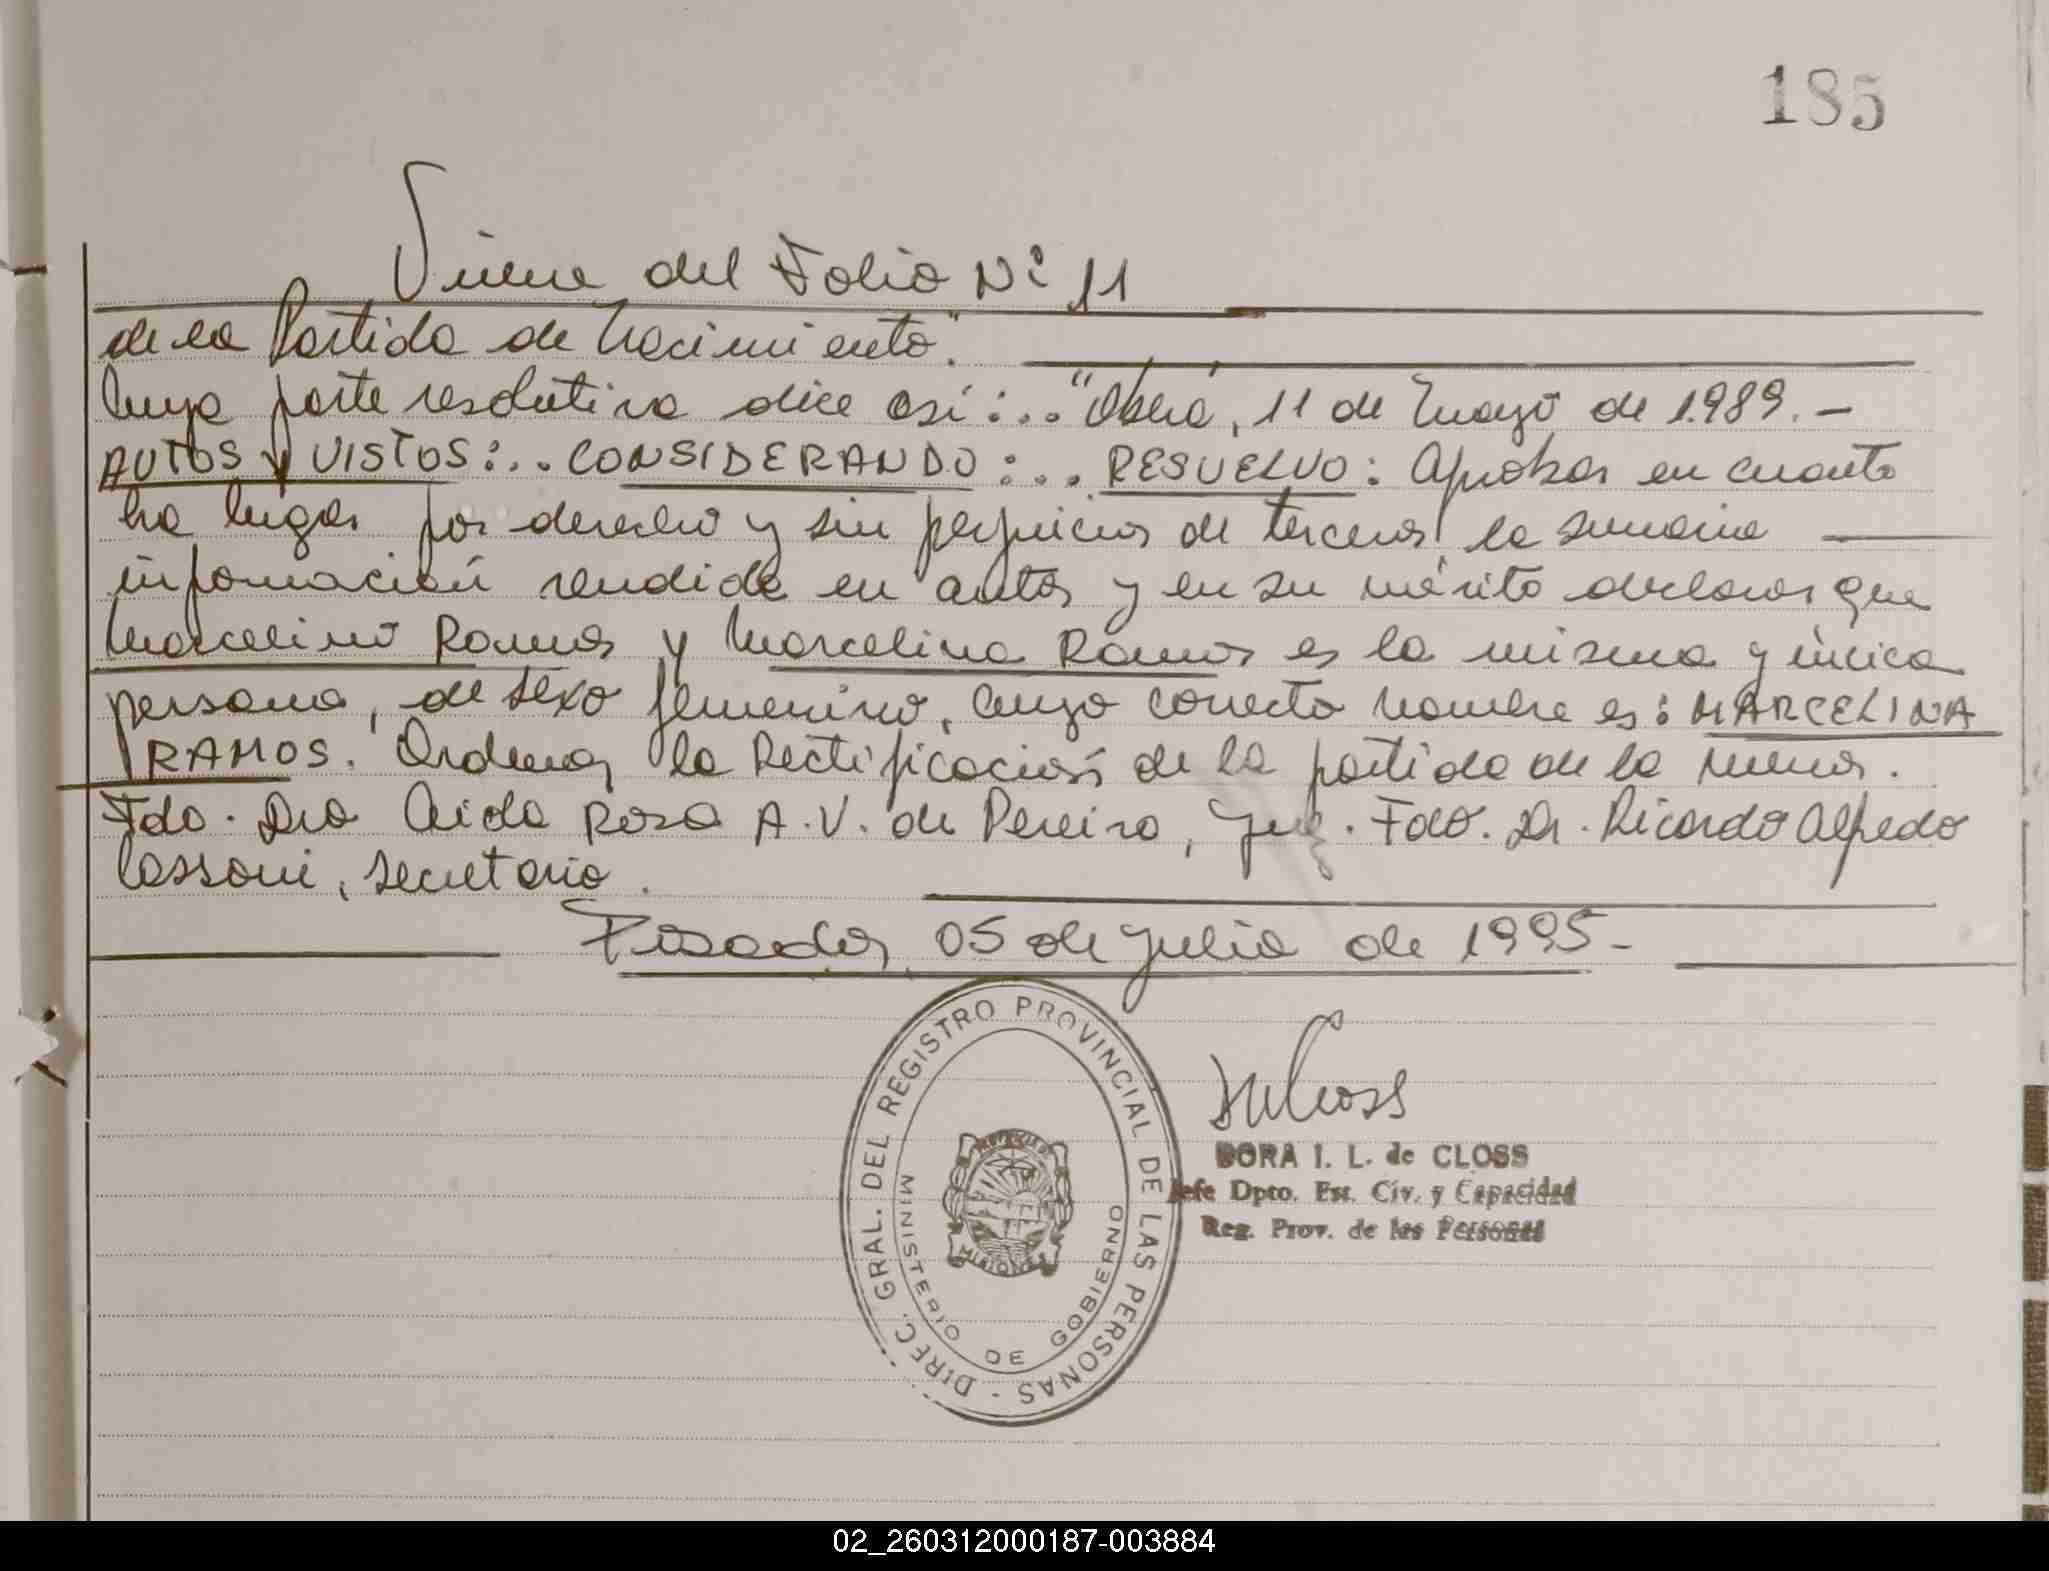 185
Viene del Folio Nº 11
de la Partida de Nacimiento".
Cuya parte resolutiva dice así:... "Oberá, 11 de Mayo de 1.989.-
AUTOS y VISTOS:.. CONSIDERANDO:... RESUELVO: Aprobar en cuanto
ha lugar por derecho y sin perjuicios de terceros la sumaria
información rendida en autos y en su mérito declarar que
Marcelino Ramos y Marcelina Ramos es la misma y única
persona, de sexo femenino, cuyo correcto nombre es: MARCELINA
RAMOS. Ordenar la Rectificación de la partida de la menor.
Fdo. Dra Aida Rosa A.V. de Pereira, Juez. Fdo. Dr. Ricardo Alfredo
Cassoni, secretario.
Posadas, 05 de Julio de 1995-
DIREC. GRAL. DEL REGISTRO PROVINCIAL DE LAS PERSONAS -
MINISTERIO DE GOBIERNO
MISIONES
DORA I. L. de CLOSS
Jefe Dpto. Est. Civ. y Capacidad
Reg. Prov. de las Personas
02_260312000187-003884